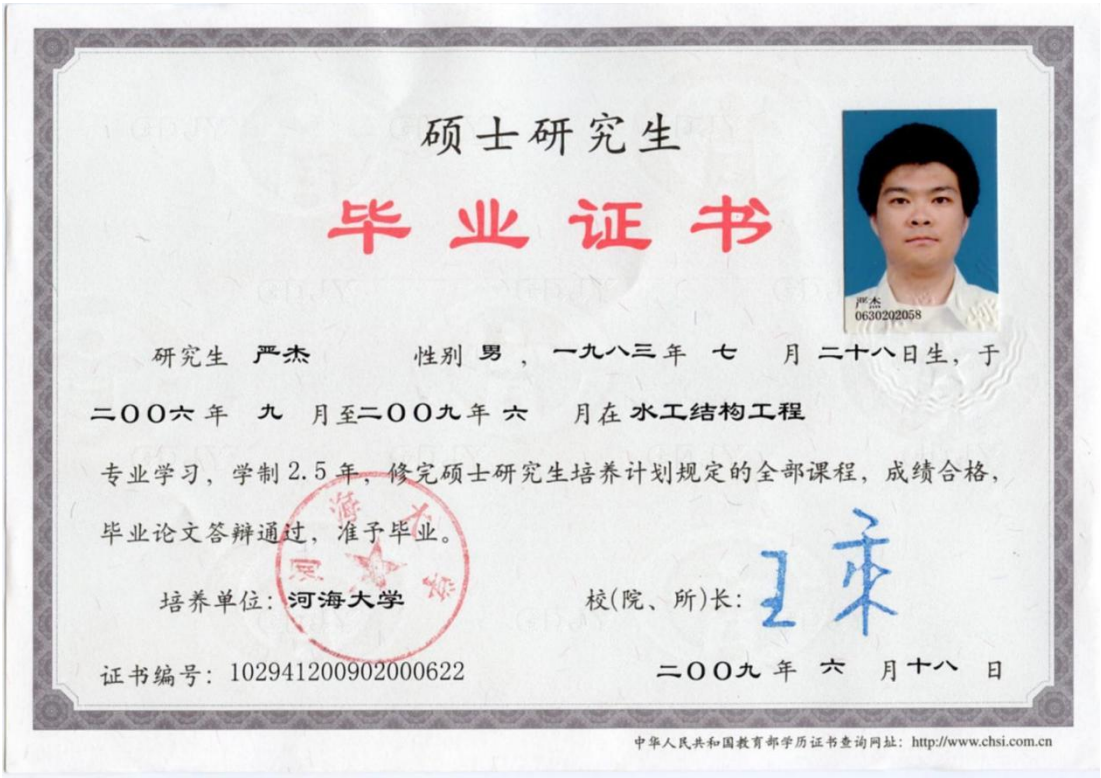 硕士研究生
毕业证书
严杰
0630202058
研究生 严杰 性别 男，一九八三年 七 月 二十八日生，于
二〇〇六年 九 月至二〇〇九年 六 月在 水工结构工程
专业学习，学制 2.5 年，修完硕士研究生培养计划规定的全部课程，成绩合格，
毕业论文答辩通过，准予毕业。
河海大学
培养单位：河海大学 校(院、所)长：
证书编号：102941200902000622 二〇〇九 年 六 月十八 日
中华人民共和国教育部学历证书查询网址：http://www.chsi.com.cn